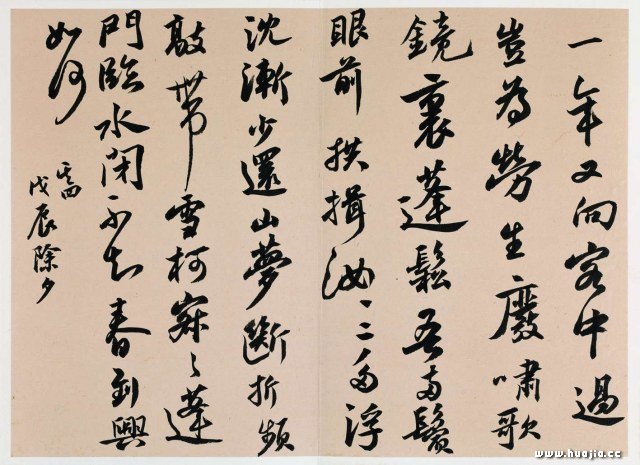 一年又向客中過
豈為勞生廢嘯歌
鏡裏蓬鬆吾兩鬢
眼前拱揖汝三多浮
沈漸少還山夢斷折頻
敲帶雪柯寂〻蓬
門臨水閉不知春到興
如何
其四
戊辰除夕
www.huajia.cc